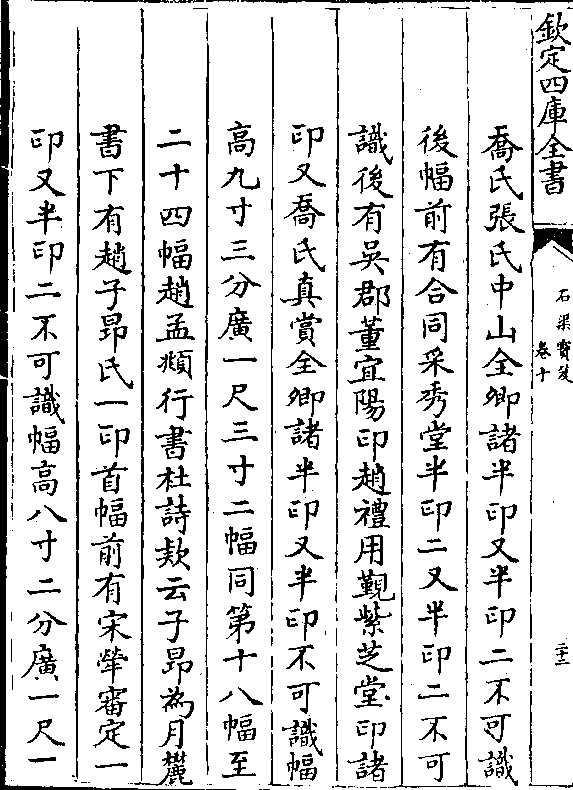 欽定四庫全書
石渠寶笈
卷十
二十三
喬氏張氏中山全卿諸半印又半印二不可識
後幅前有合同采秀堂半印二又半印二不可
識後有吳郡董宜陽印趙禮用觀紫芝堂印諸
印又喬氏真賞全卿諸半印又半印不可識幅
高九寸三分廣一尺三寸二幅同第十八幅至
二十四幅趙孟頫行書杜詩欵云子昂為月麓
書下有趙子昂氏一印首幅前有宋犖審定一
印又半印二不可識幅高八寸二分廣一尺一